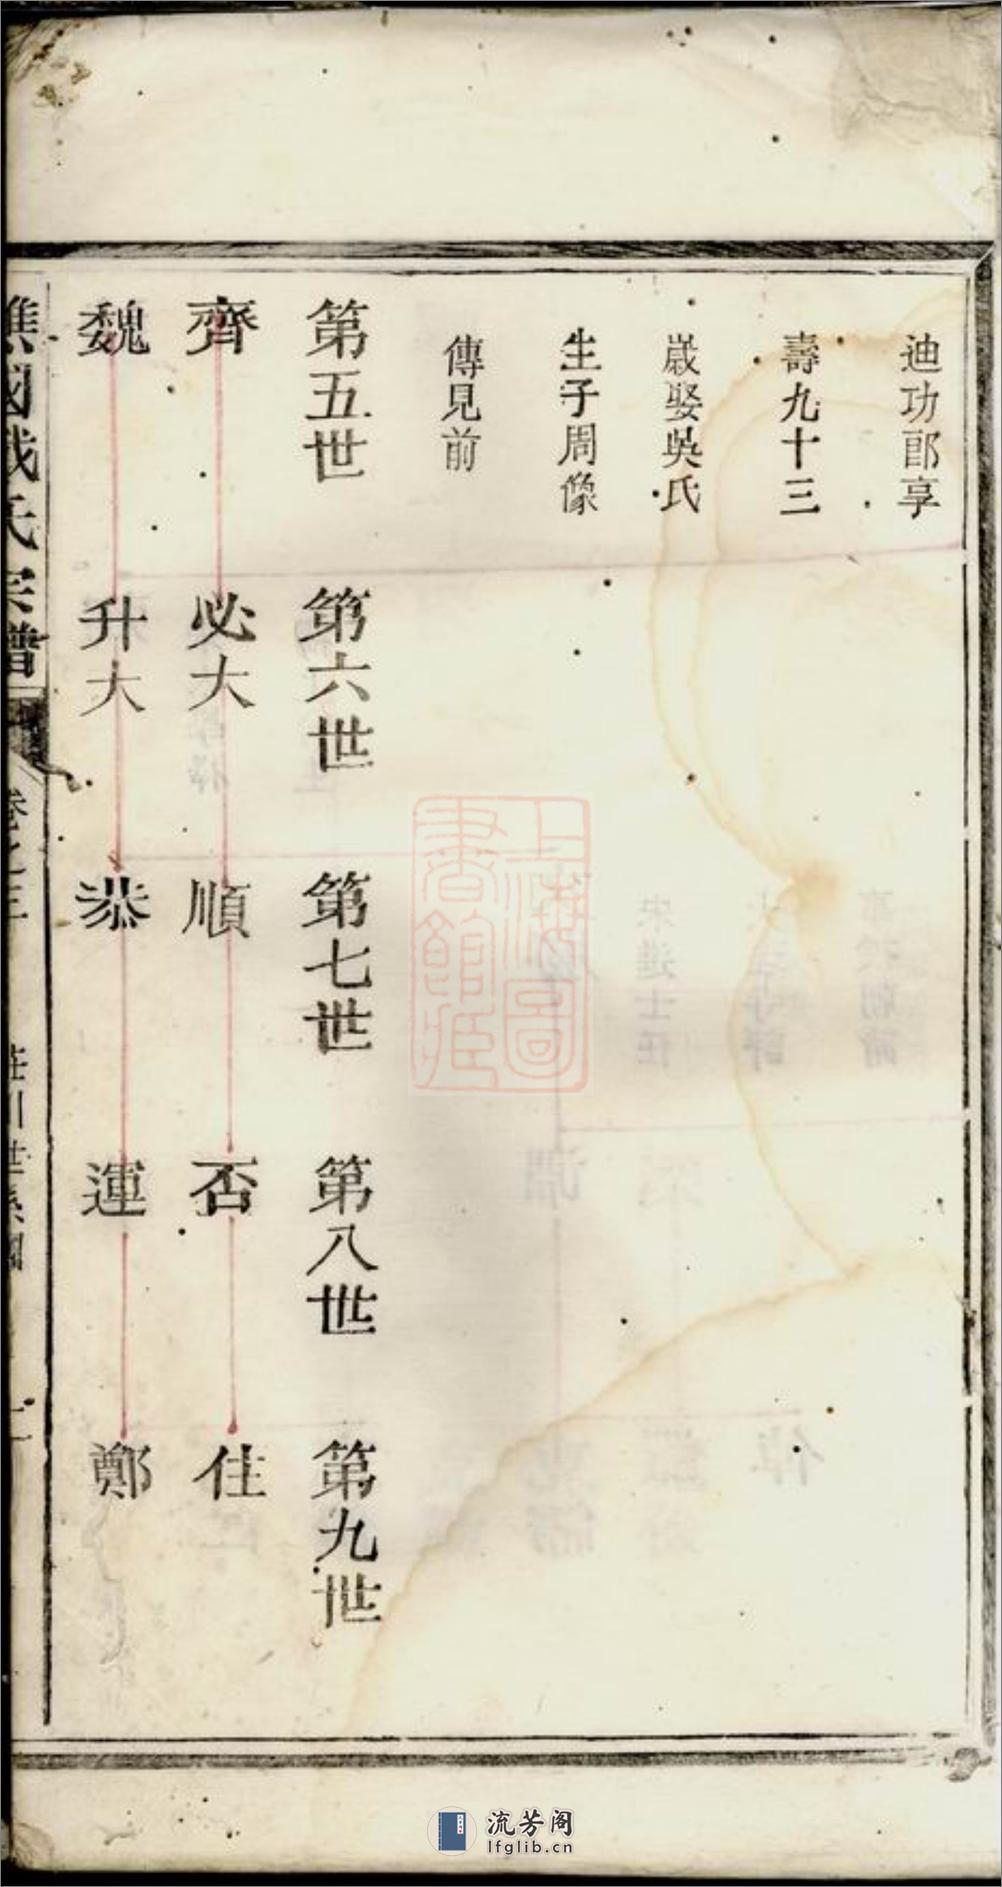 迪功郎享
壽九十三
歲娶吳氏
生子周像
傳見前
第五世
第六世
第七世
第八世
第九世
齊
必大
順
否
住
魏
升大
恭
運
鄭
國戴氏宗譜
卷之三
莊川世系圖
上海圖書館藏
流芳阁
lfglib.cn